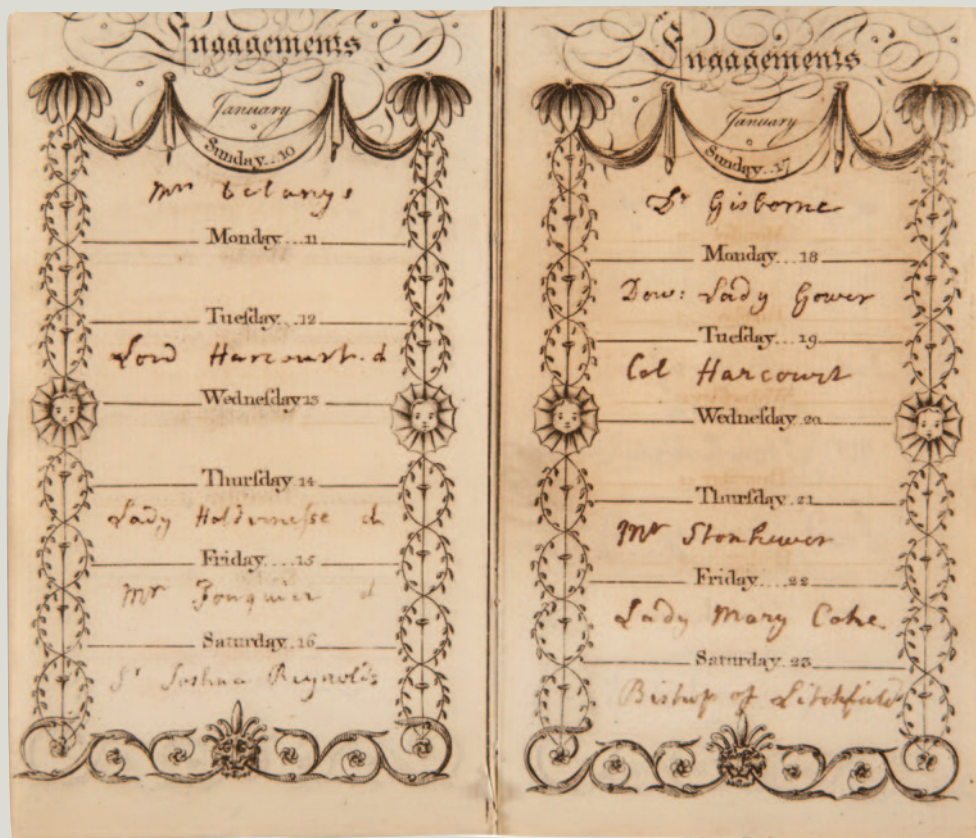 Engagements
January
Sunday..10
Mrs Delanys
Monday...11
Tuesday...12
Lord Harcourt. d
Wednesday 13
Thursday 14
Lady Holdernesse d
Friday....15
Mr Fonquier d
Saturday.16
Sr Joshua Reynolds
Engagements
January
Sunday..17
Dr Gisborne
Monday...18
Dow: Lady Gower
Tuesday...19
Col Harcourt
Wednesday 20
Thursday.21
Mr Stonhewer
Friday....22
Lady Mary Coke
Saturday.23
Bishop of Litchfield